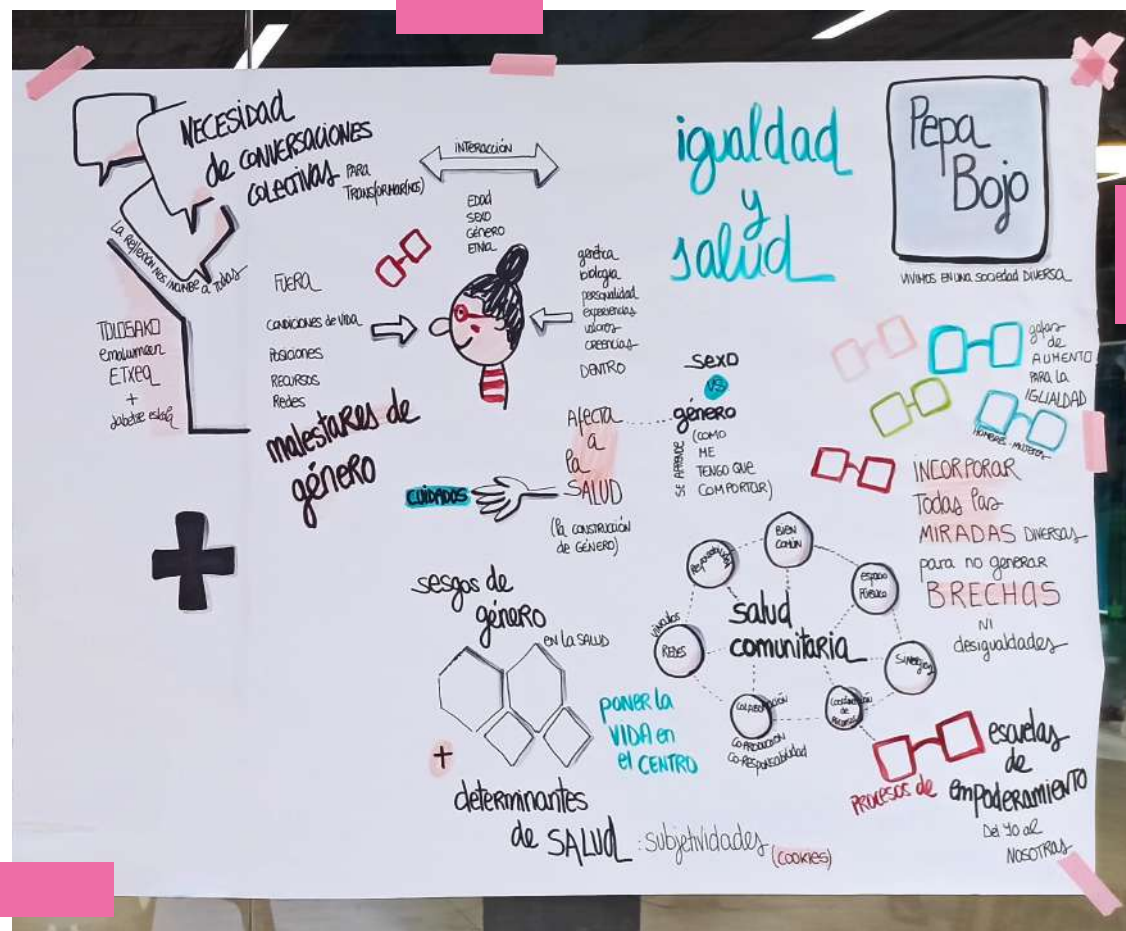 NECESIDAD
de CONVERSACIONES
COLECTIVAS PARA
TRANSFORMAR(NOS)
LA REFLEXIÓN NOS INCUMBE A TODAS
TOLOSAKO
emakumeen
ETXEA
+
jabetze eskola
INTERACCIÓN
EDAD
SEXO
GÉNERO
ETNIA
FUERA
CONDICIONES de VIDA
POSICIONES
RECURSOS
Redes
genética
biología
personalidad
experiencias
valores
creencias
DENTRO
igualdad
y
salud
Pepa
Bojo
VIVIMOS EN UNA SOCIEDAD DIVERSA
gafas
de
AUMENTO
PARA LA
IGUALDAD
HOMBRES - MUJERES
malestares de
género
CUIDADOS
AFECTA
a
la
SALUD
(la CONSTRUCCIÓN
de GÉNERO)
SEXO
VS
género
SE APRENDE
(COMO
ME
TENGO QUE
COMPORTAR)
INCORPORAR
Todas las
MIRADAS DIVERSAS
para no generar
BRECHAS
NI
desigualdades
sesgos de
género
EN LA SALUD
+
determinantes
de SALUD : subjetividades (COOKIES)
PONER LA
VIDA en
el CENTRO
salud
comunitaria
BIEN
COMÚN
ESPACIO
PÚBLICO
SINERGIAS
COORDINACIÓN
de
RECURSOS
COLABORACIÓN
CO-PRODUCCIÓN
CO-RESPONSABILIDAD
VÍNCULOS
REDES
PROCESOS de
escuelas
de
EMPODERAMIENTO
Del YO al
NOSOTRAS